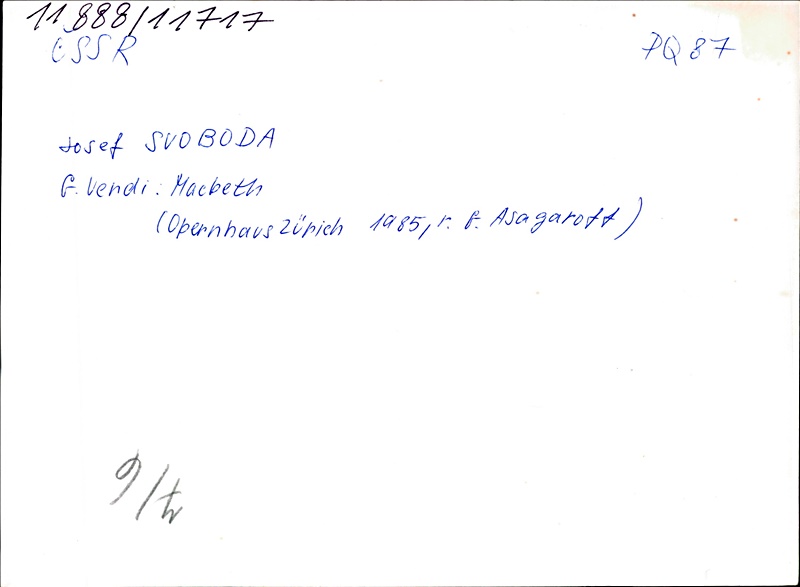 11888/11717
ČSSR PQ 87
Josef SVOBODA
G. Verdi: Macbeth
(Opernhaus Zürich 1985, r. G. Asagaroff)
9/